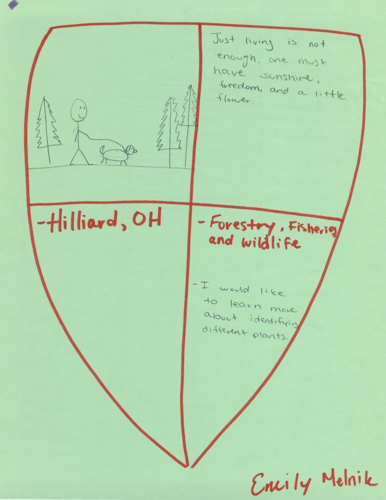 Just living is not
enough, one must
have sunshine,
freedom, and a little
flower.
-Hilliard, OH
-Forestry, Fisheries,
and wildlife
-I would like
to learn more
about identifying
different plants.
Emily Melnik